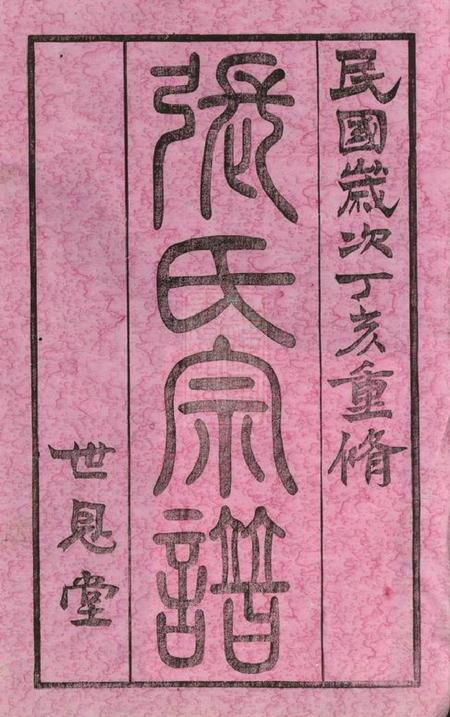 民國歲次丁亥重脩
張氏宗譜
世恩堂